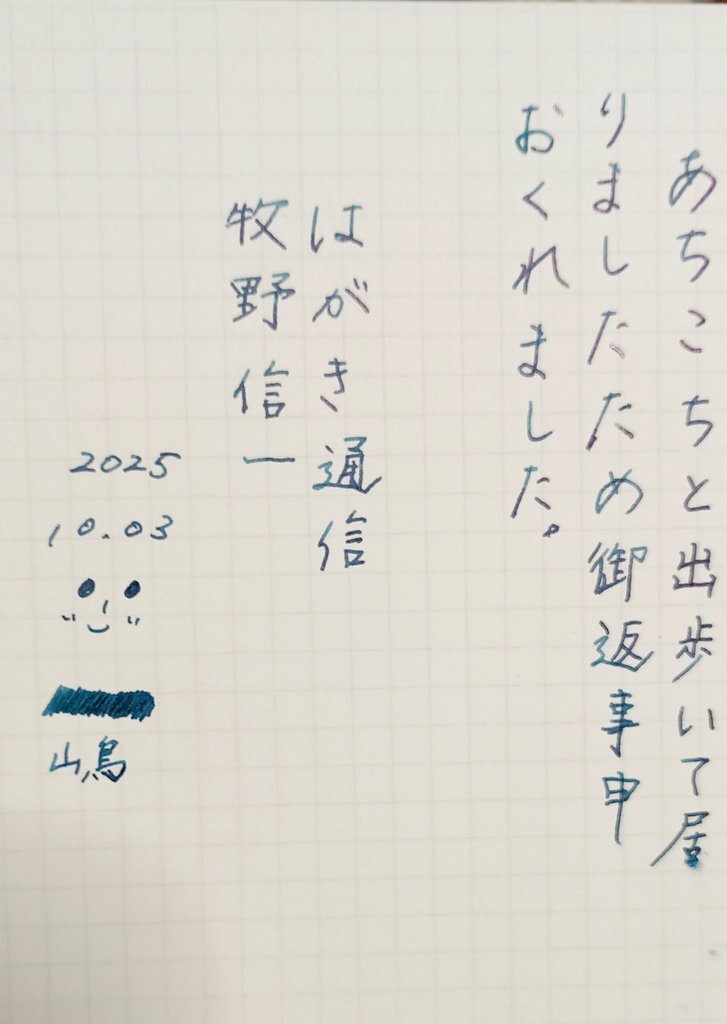 あちこちと出歩いて居
りましたため御返事申
おくれました。
はがき通信
牧野信一
2025
10.03
山鳥